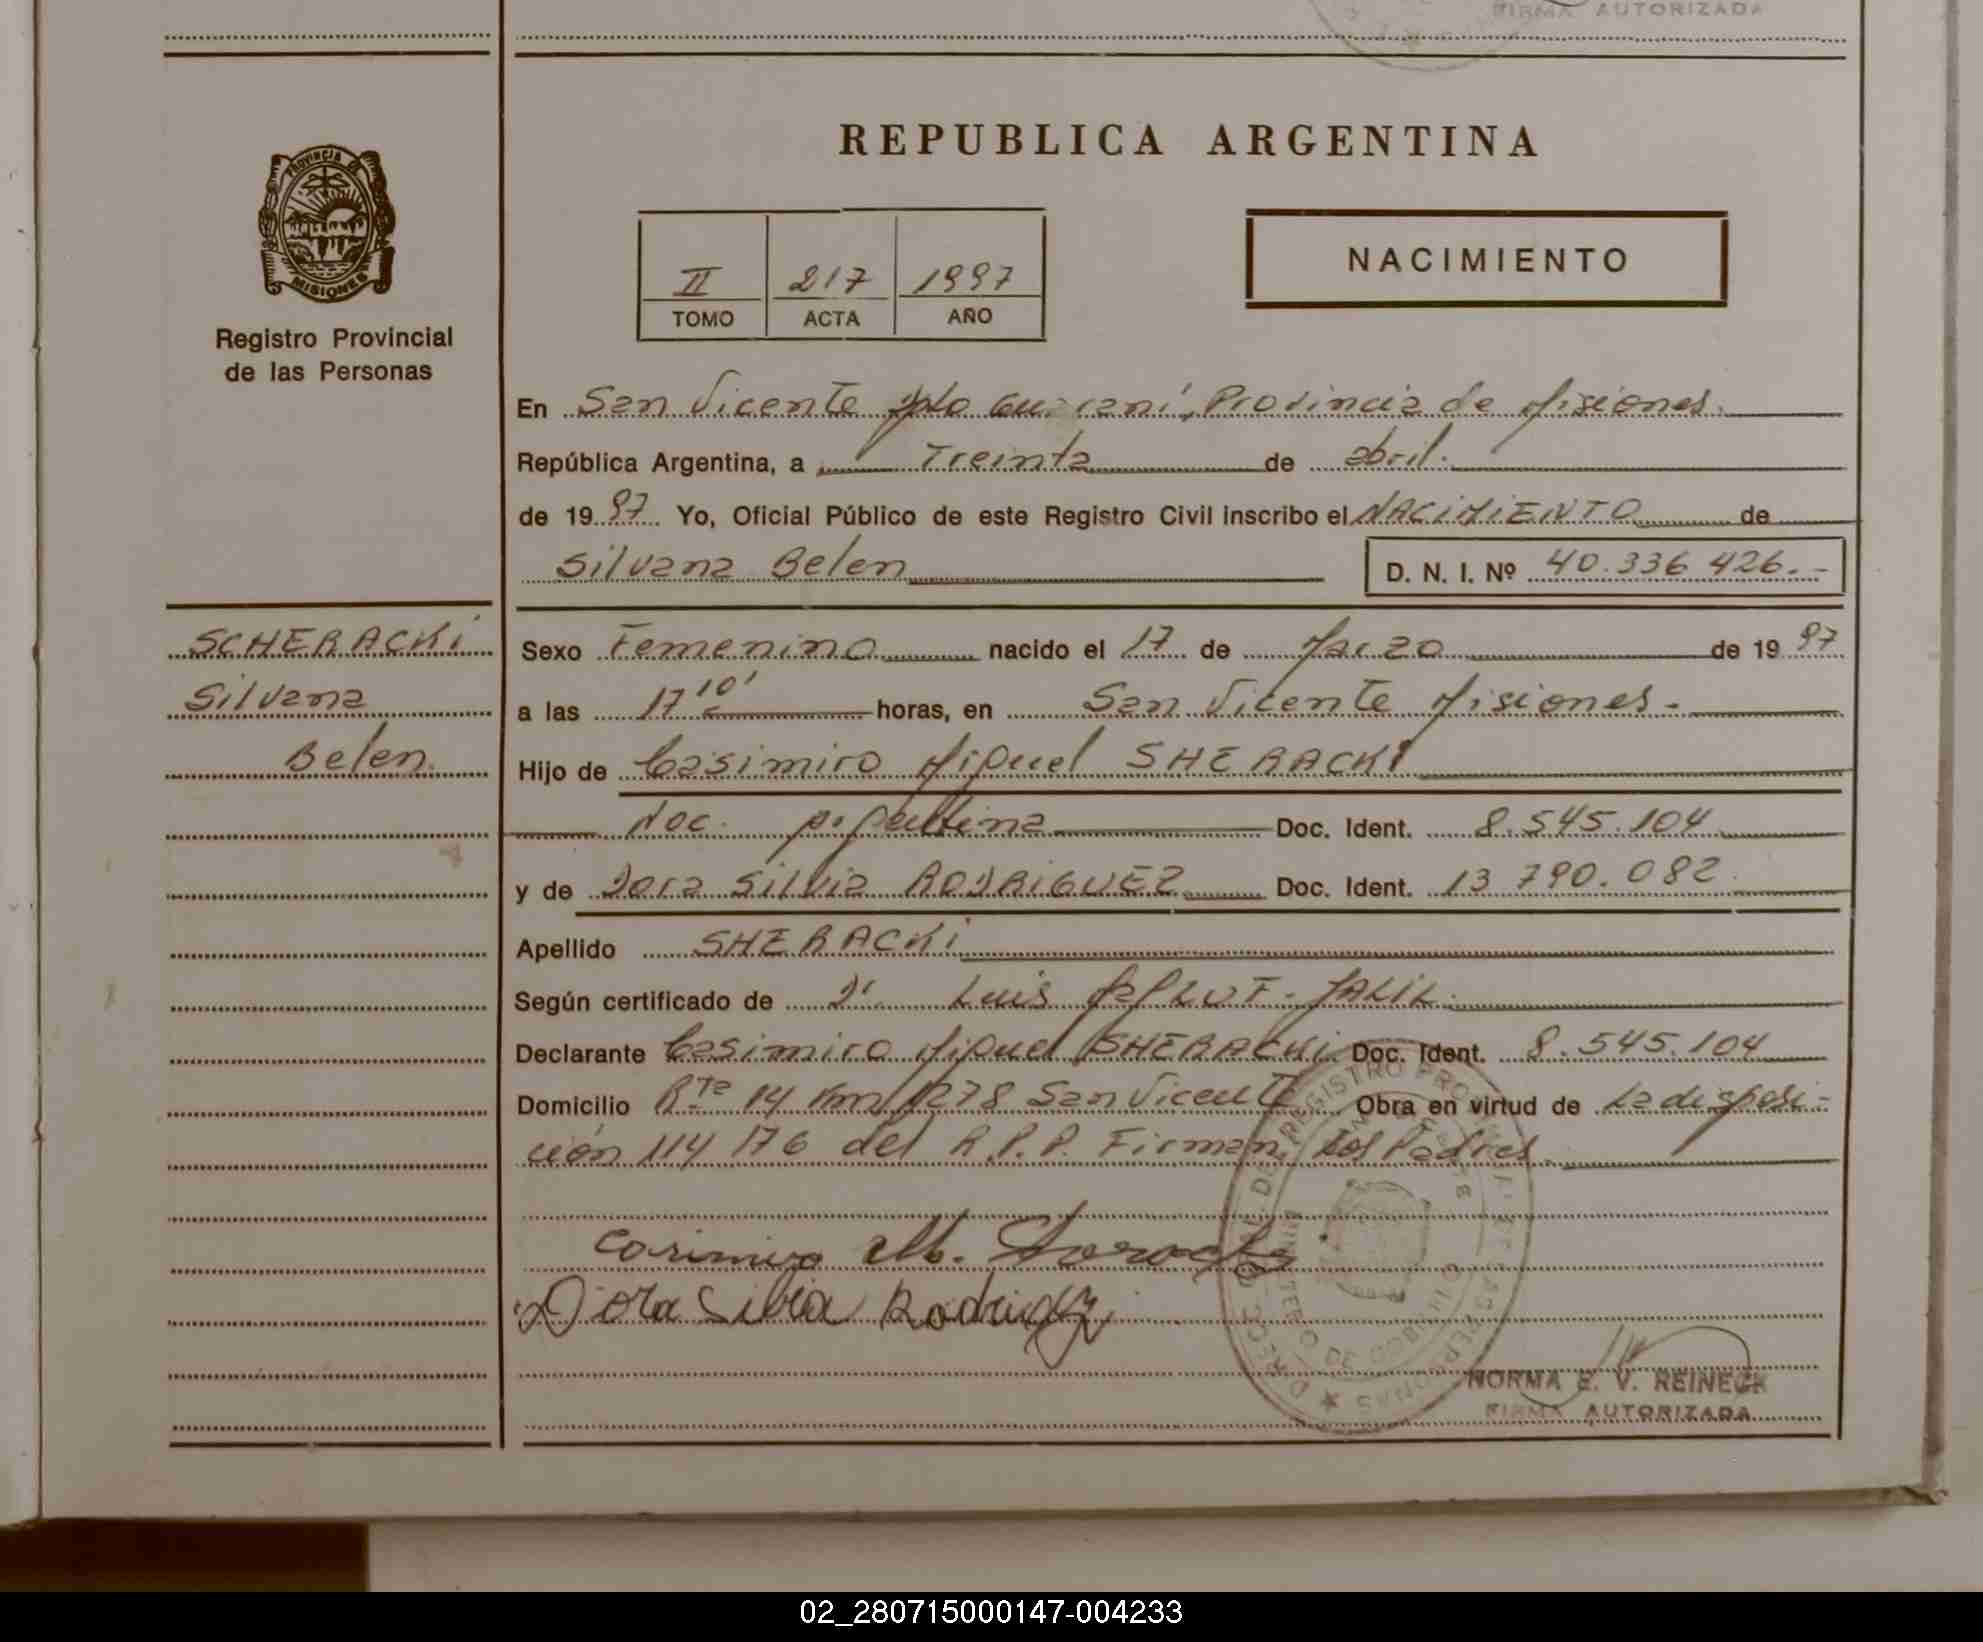 FIRMA AUTORIZADA
REPUBLICA ARGENTINA
PROVINCIA DE
MISIONES
Registro Provincial
de las Personas
II 217 1997
TOMO ACTA AÑO
NACIMIENTO
En San Vicente Dpto Guaraní, Provincia de Misiones.
República Argentina, a Treinta de abril.
de 1997 Yo, Oficial Público de este Registro Civil inscribo el NACIMIENTO de
Silvana Belen D. N. I. Nº 40.336 426.-
SCHERACKi
Silvana
Belen.
Sexo Femenino nacido el 17 de Marzo de 1997
a las 17 10' horas, en San Vicente Misiones.-
Hijo de Casimiro Miguel SHERACKi
Nac. Argentina Doc. Ident. 8.545.104
y de Dora Silvia RODRiGUEZ Doc. Ident. 13 790.082.
Apellido SHERACKi
Según certificado de Dr. Luis JALIL.
Declarante Casimiro Miguel SHERACKi Doc. Ident. 8.545.104
Domicilio Rta 14 Km 1278 San Vicente Obra en virtud de La disposi-
ción 114 176 del R.P.P. Firman Los Padres.
Casimiro M.
Dora Silvia Rodriguez
NORMA E. V. REINECK
FIRMA AUTORIZADA
02_280715000147-004233